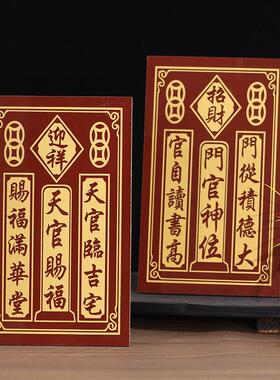 迎祥
天官臨吉宅
天官賜福
賜福滿華堂
招財
門從積德大
門官神位
官自讀書高